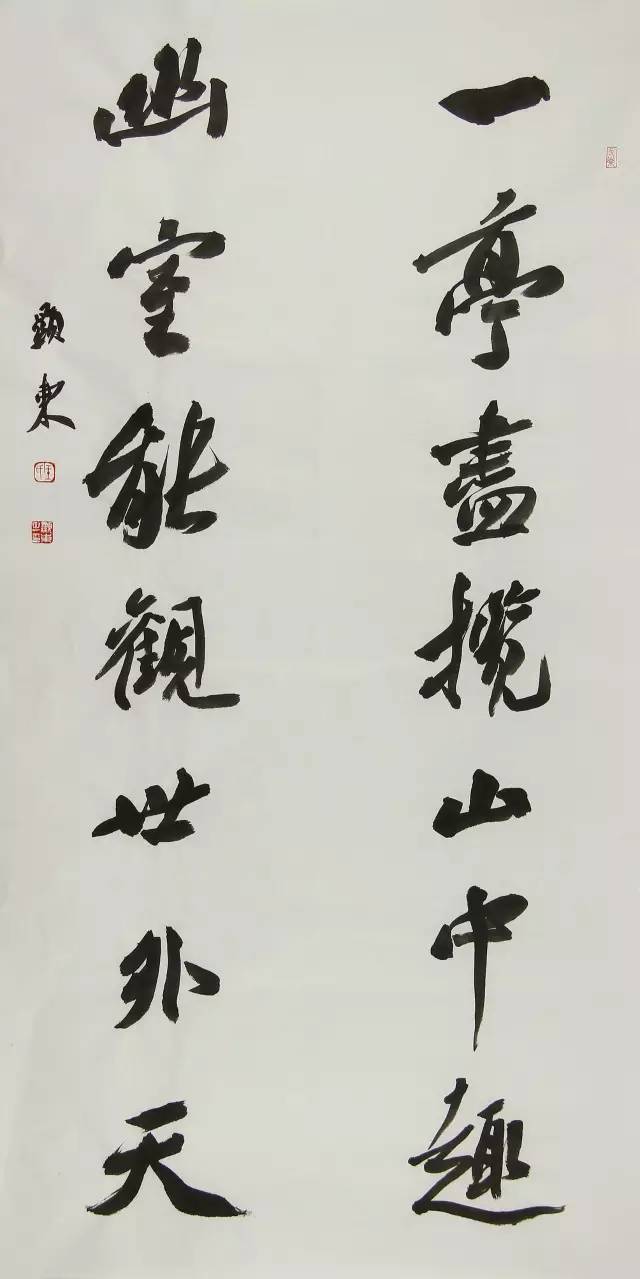 一亭盡攬山中趣
幽室能觀世外天
顯東